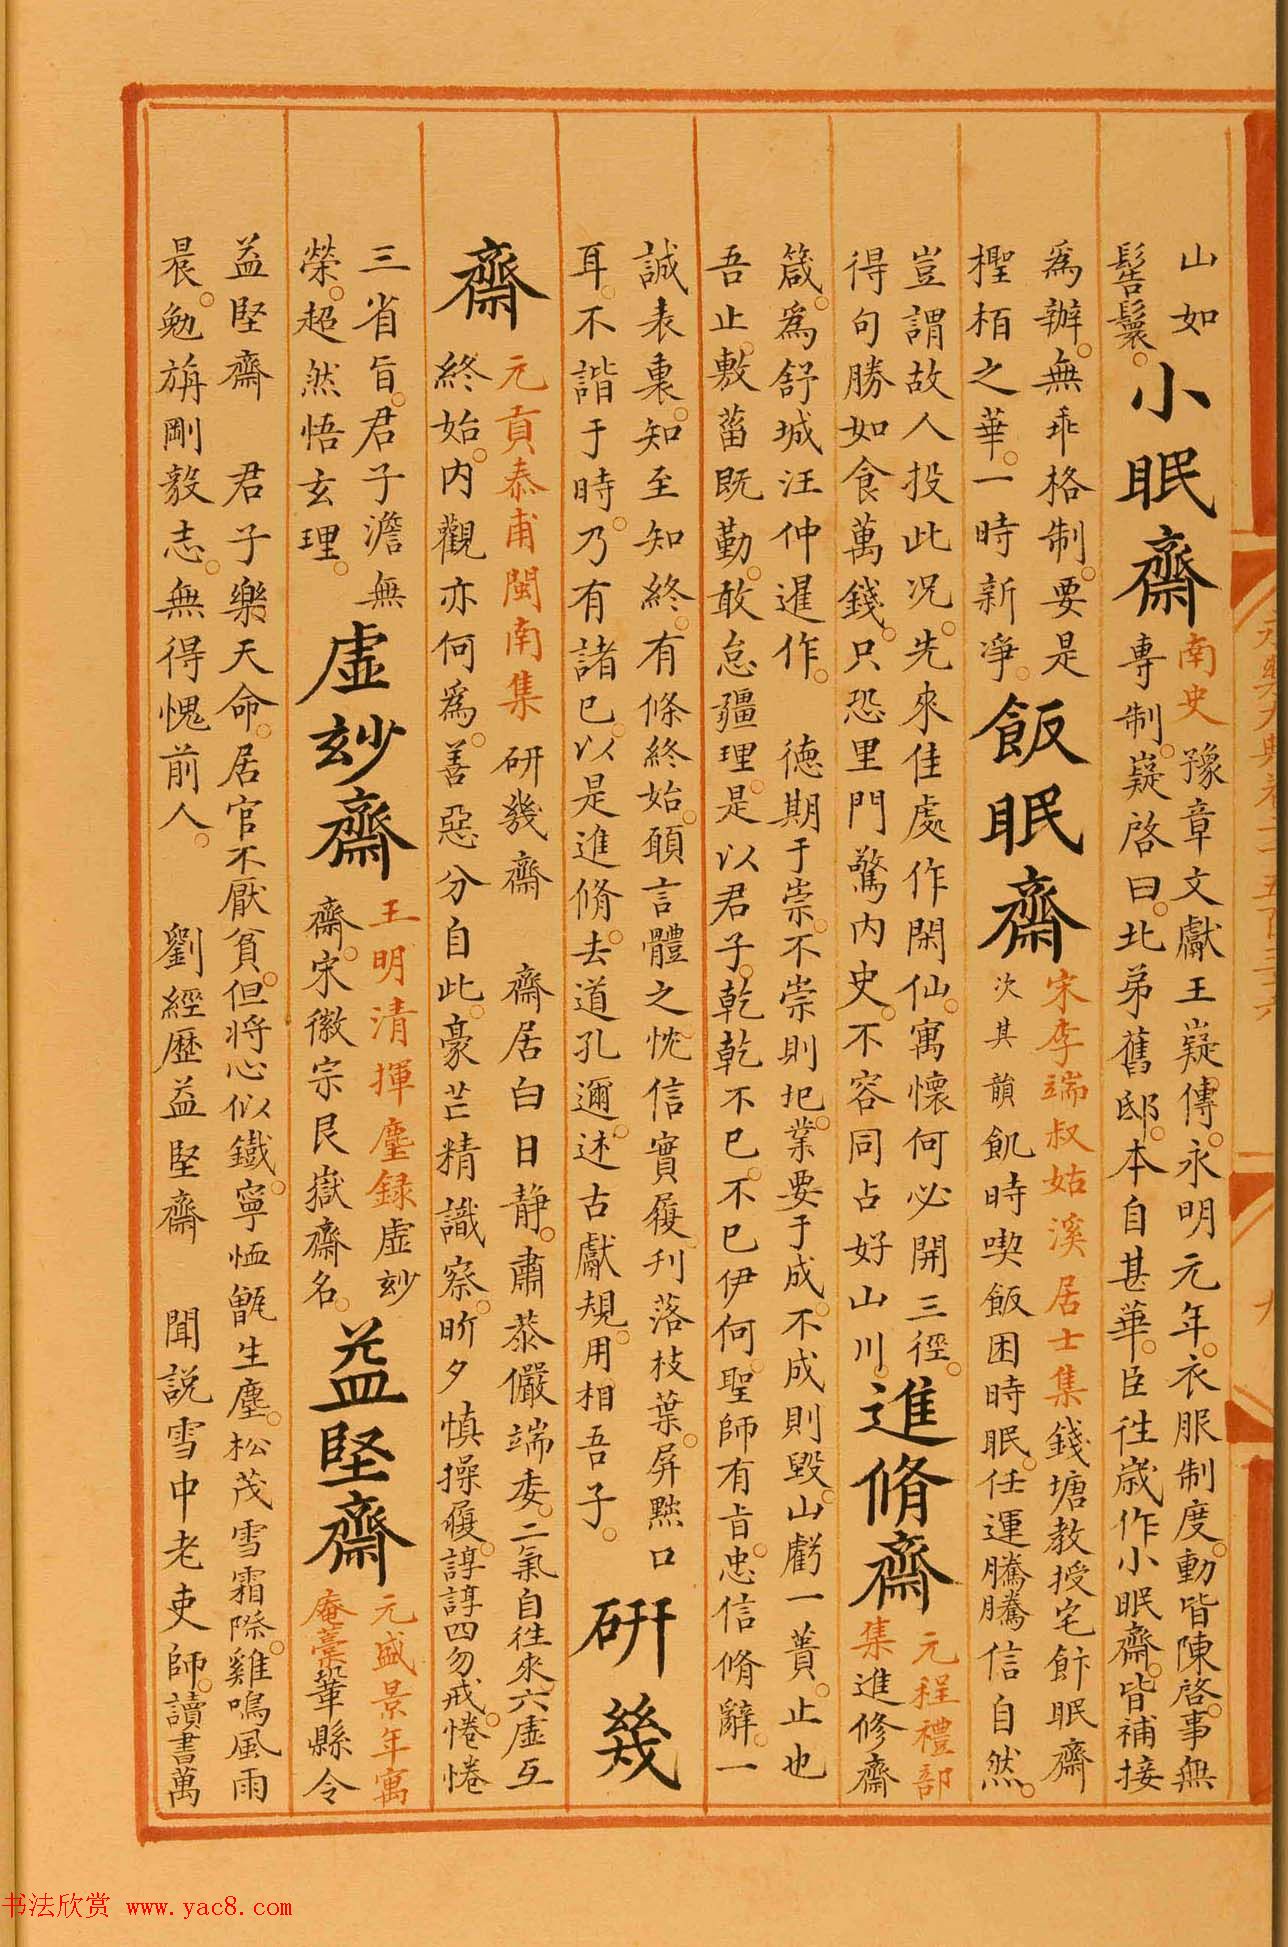 永樂大典卷二千五百三十六
九
山如
髻鬟。
小眠齋
南史 豫章文獻王嶷傳。永明元年。衣服制度。動皆陳啓。事無
專制。嶷啓曰。北弟舊邸。本自甚華。臣往歲作小眠齋。皆補接
為辦。無乖格制。要是
檉栢之華。一時新淨。
飯眠齋
宋李端叔姑溪居士集錢塘教授宅飰眠齋
次其韻 飢時喫飯困時眠。任運騰騰信自然。
豈謂故人投此况。先來佳處作閑仙。寓懷何必開三徑。
得句勝如食萬錢。只恐里門驚内史。不容同占好山川。
進脩齋
元程禮部
集進修齋
箴。為舒城汪仲暹作。 德期于崇。不崇則圮。業要于成。不成則毀。山虧一蕢。止也
吾止。敷菑既勤。敢怠疆理。是以君子。乾乾不已。不已伊何。聖師有旨。忠信脩辭。一
誠表裏。知至知終。有條終始。願言體之。忱信實履。刋落枝葉。屏黙口
耳。不諧于時。乃有諸已。以是進脩。去道孔邇。述古獻規。用相吾子。
研幾
齋
元貢泰甫閩南集 研幾齋 齋居白日静。肅恭儼端委。二氣自往來。六虛互
終始。内觀亦何為。善惡分自此。豪芒精識察。昕夕慎操履。諄諄四勿戒。惓惓
三省旨。君子澹無
榮。超然悟玄理。
虛玅齋
王明清揮麈録虛玅
齋。宋徽宗艮嶽齋名。
益堅齋
元盛景年寓
庵藁鞏縣令
益堅齋 君子樂天命。居官不厭貧。但將心似鐵。寧恤甑生塵。松茂雪霜際。雞鳴風雨
晨。勉旃剛毅志。無得愧前人。 劉經歷益堅齋 聞說雪中老吏師。讀書萬
书法欣赏 www.yac8.com